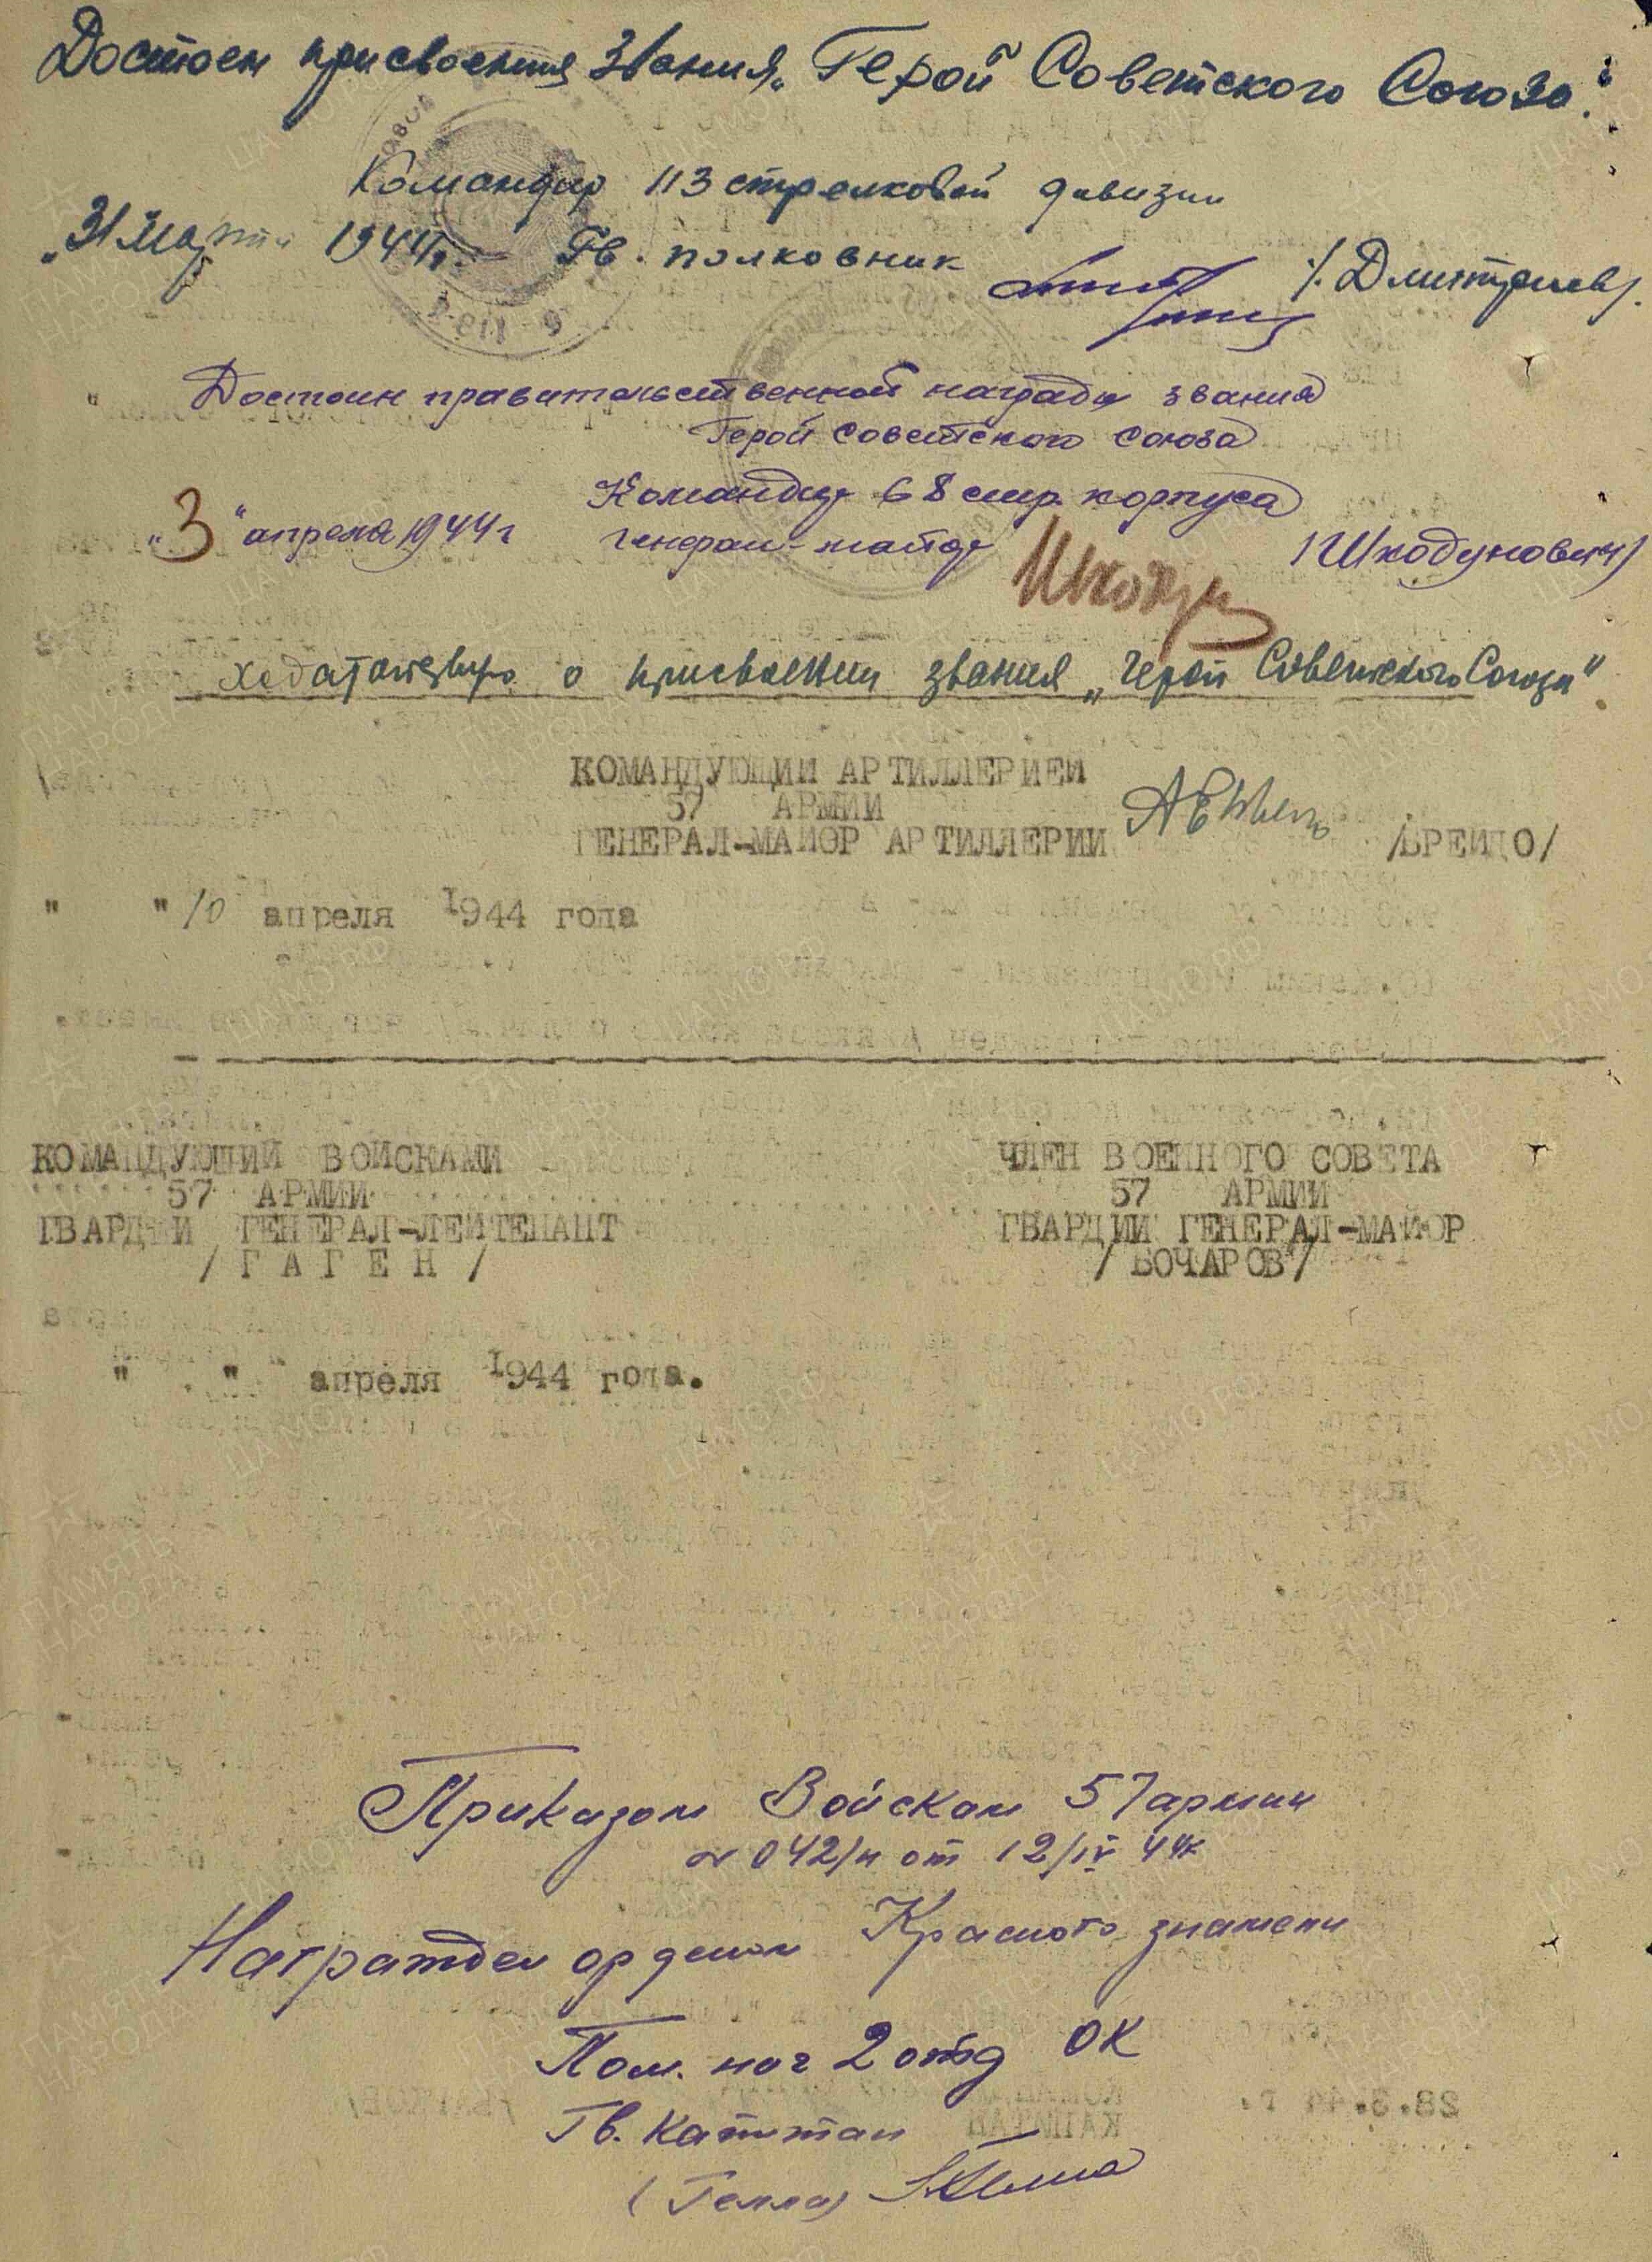 Достоен присвоения звания „Герой Советского Союза".
Командир 113 стрелковой дивизии
„31 марта 1944г. Гв. полковник /Дмитриев/.
Достоин правительственной награды звания
Герой Советского Союза
Командир 68 стр. корпуса
„3" апреля 1944г генерал-майор /Шкодунович/
ходатайствую о присвоении звания „Герой Советского Союза"
КОМАНДУЮЩИЙ АРТИЛЛЕРИЕЙ
57 АРМИИ
ГЕНЕРАЛ-МАЙОР АРТИЛЛЕРИИ /БРЕЙДО/
" "10 апреля 1944 года
КОМАНДУЮЩИЙ ВОЙСКАМИ
57 АРМИИ
ГВАРДИИ ГЕНЕРАЛ-ЛЕЙТЕНАНТ
/ Г А Г Е Н /
ЧЛЕН ВОЕННОГО СОВЕТА
57 АРМИИ
ГВАРДИИ ГЕНЕРАЛ-МАЙОР
/ БОЧАРОВ /
" " апреля 1944 года.
Приказом Войскам 57 армии
№ 042/н от 12/IV 44г
Награжден орденом Красного знамени
Пом. нач 2 отд ОК
Гв. капитан